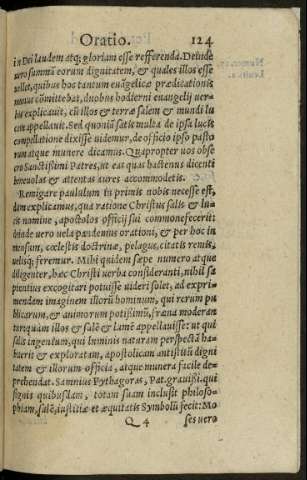 Oratio. 124
in Dei laudem atq; gloriam esse refferenda. Deinde
vero summã eorum dignitatem, & quales illos esse
vellet, quibus hoc tantum euãgelicæ prædicationis
munus cõmittebat, duobus hodierni euangelij ver-
bis explicauit, cũ illos & terræ salem & mundi lu
cem appellauit. Sed quoniũ satis multa de ipsa lucis
compellatione dixisse uidemur, de officio ipso pasto
rum atque munere dicamus. Quapropter uos obse
cro Sanctissimi Patres, ut eas quas hactenus dicenti
beneuolas & attentas aures accommodetis.
Remigare paululum in primis nobis necesse est,
dum explicamus, qua ratione Christus salis & lu-
cis nomine, apostolos officij sui commonefecerit:
deinde vero vela pandemus orationi, & per hoc im
mensum, cœlestis doctrinæ, pelagus, citatis remis,
uelisq; feremur. Mihi quidem sæpe numero atque
diligenter, hæc Christi verba consideranti, nihil sa
pientius excogitari potuisse uideri solet, ad expri-
mendam imaginem illorũ hominum, qui rerum pu
blicarum, & animorum potißimũ, fræna moderan
tur, quàm illos & salẽ & lumẽ appellauisse: ut qui
salis ingentum, qui luminis naturam perspectã ha-
buerit & exploratam, apostolicam antistitũ digni
tatem & illorum officia, atque munera facile de-
prehendat. Samnius Pythagoras, Pat. grauißi. qui
signis quibusdam, totam suam inclusit philoso-
phiam, salẽ, iustitiæ et æquitatis Symbolũ fecit: Mo
Q 4 ses vero